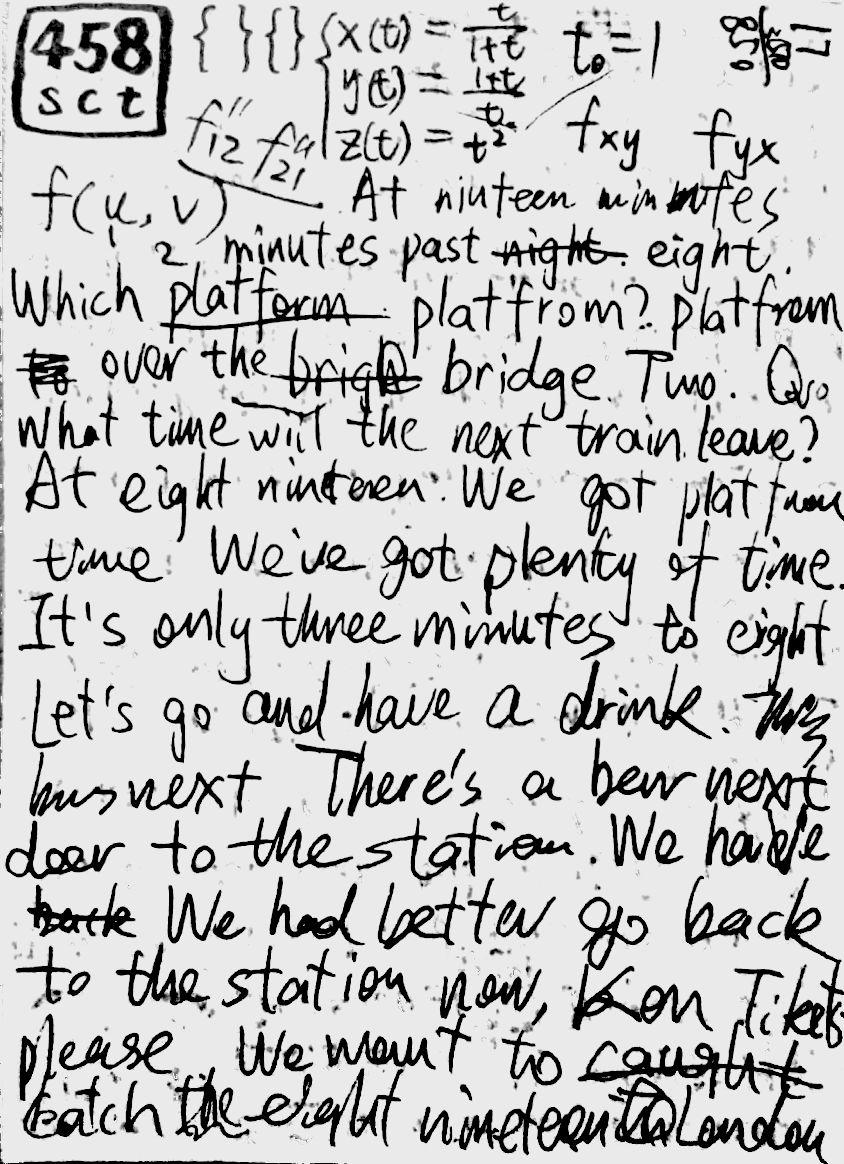 458
sct
{ } { } { x(t) = t/1+t t₀=1
y(t) = 1+t/t
z(t) = t² fxy fyx
f''12 f''21
f(u, v) At niuteen minutes
1 2 minutes past night eight.
Which platform platfrom? platfrom
over the brigh bridge. Two.
What time will the next train leave?
At eight ninteen. We got
time We've got plenty of time.
It's only three minutes to eight
Let's go and have a drink.
next There's a bar next
door to the station. We have
back We had better go back
to the station now, Kon Tikets
please We want to caught
catch the eight nineteen to London